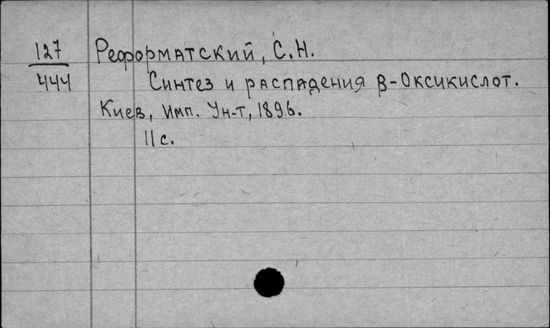 127 Реформатский, С.Н.
444 Синтез и распадения β-Оксикислот.
Киев, Имп. Ун-т, 1896.
11 с.